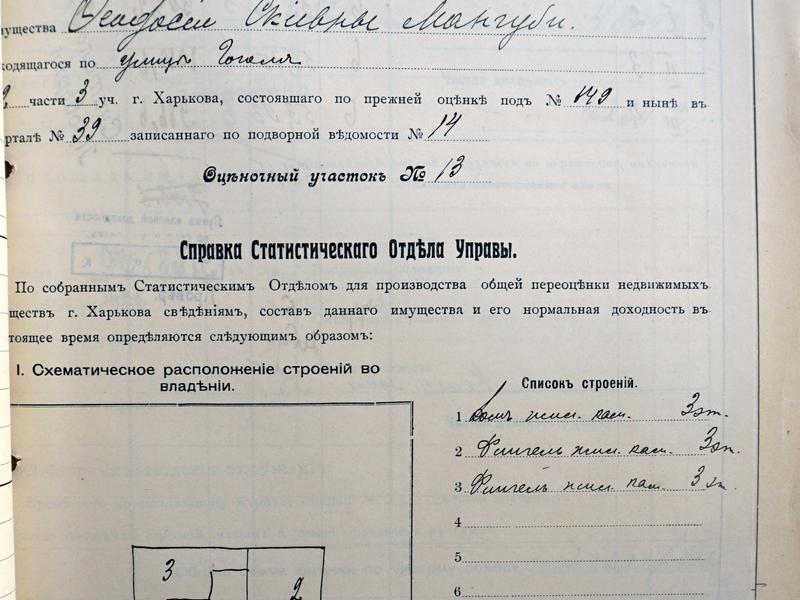 мущества Феодосіи Скивры Мангуби.
ходящагося по улицѣ Гоголя
2 части 3 уч. г. Харькова, состоявшаго по прежней оцѣнкѣ подъ № 149 и нынѣ въ
рталѣ № 39 записаннаго по подворной вѣдомости № 14
Оцѣночный участокъ № 13
Справка Статистическаго Отдѣла Управы.
По собраннымъ Статистическимъ Отдѣломъ для производства общей переоцѣнки недвижимыхъ
ществъ г. Харькова свѣдѣніямъ, составъ даннаго имущества и его нормальная доходность въ
тоящее время опредѣляются слѣдующимъ образомъ:
I. Схематическое расположеніе строеній во
владѣніи.
Списокъ строеній.
1 Домъ жил. кам. 3 эт.
2 Флигель жил. кам. 3 эт.
3 Флигель жил. кам. 3 эт.
4
5
6
3
2